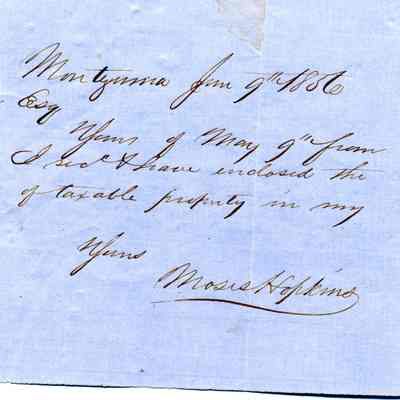 Montezuma Jun 9th 1856
Esq
Yours of May 9th from
I recd & have enclosed the
of taxable property in my
Yours
Moses Hopkins